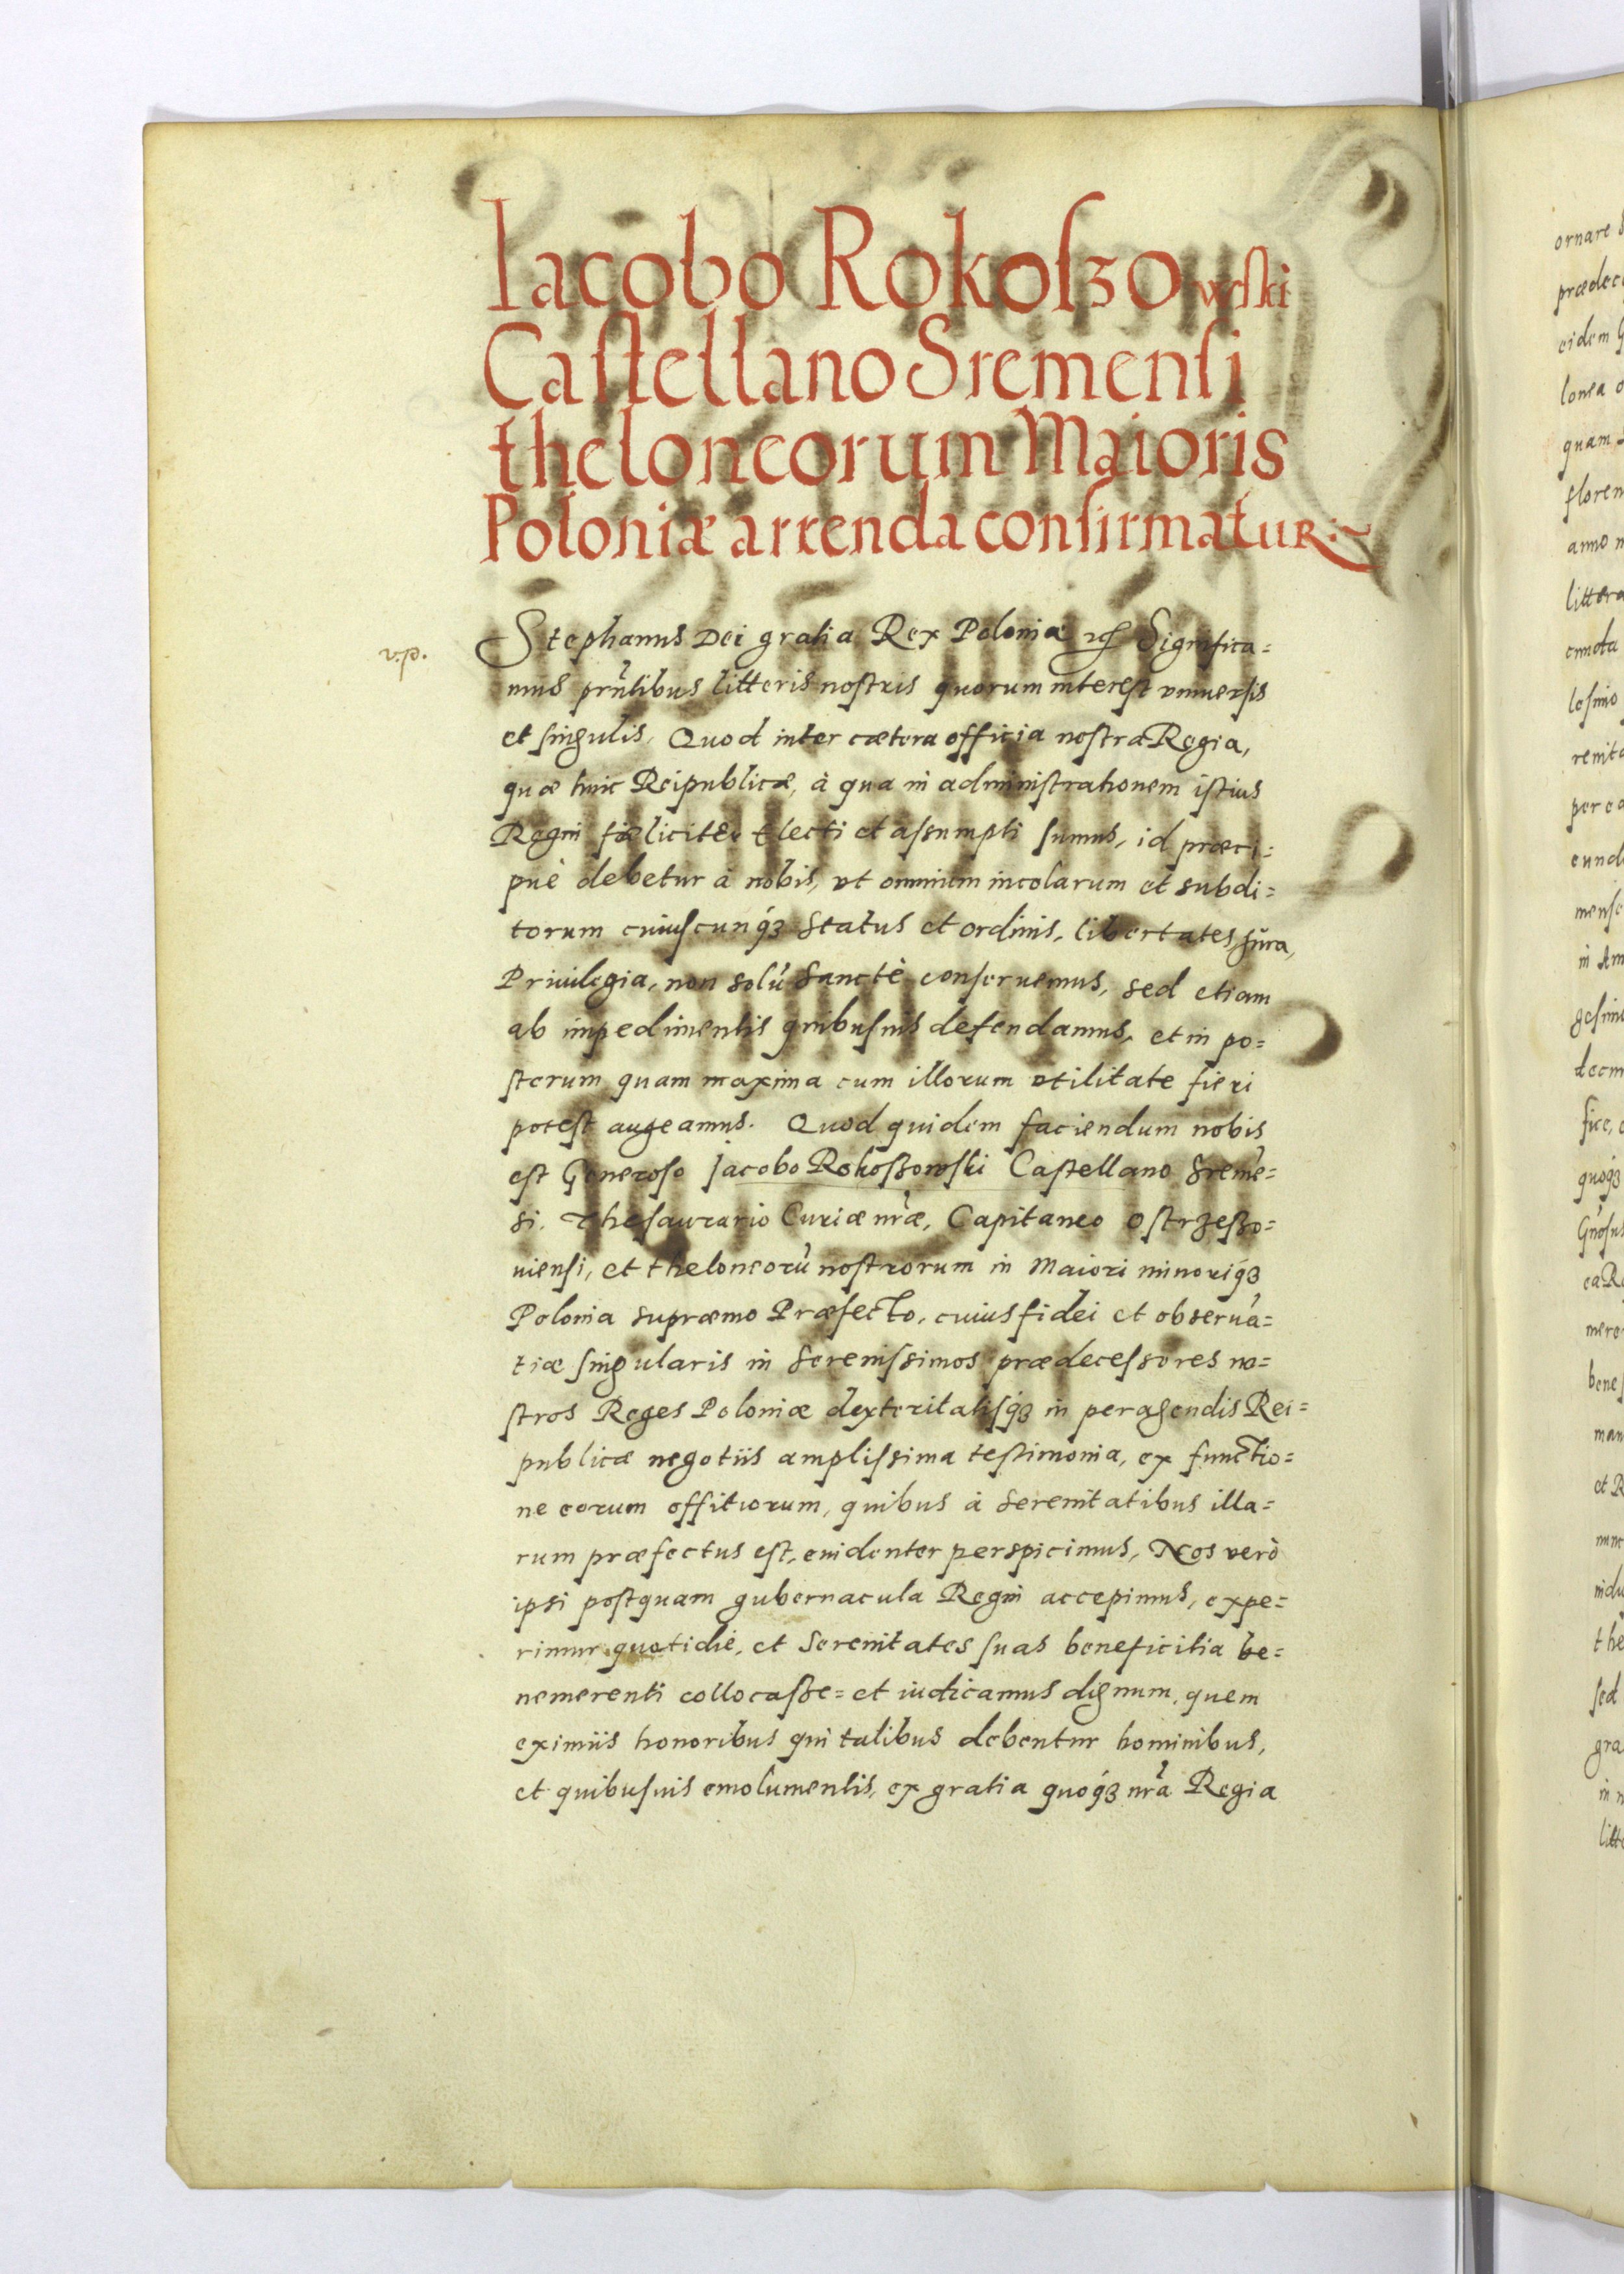 Iacobo Rokoſzowſki
Caſtellano Sremenſi
theloneorum Maioris
Poloniæ arrenda confirmatur
v.p.
Stephanus Dei gratia Rex Poloniæ Significa=
mus pn̄tibus litteris noſtris quorum intereſt vniuerſis
et ſingulis, Quod inter cætera officia noſtra Regia,
quæ huic Reipublicæ, à qua in adminiſtrationem iſtius
Regni fæliciter Electi et aſsumpti ſumus, id præci=
puè debetur à nobis, vt omnium incolarum et subdi=
torum cuiuſcunqȝ Status et ordinis, libertates, Iura,
Priuilegia, non solū Sanctè conſeruemus, sed etiam
ab impedimentis quibuſuis defendamus, et in po=
ſterum quam maxima cum illorum vtilitate fieri
poteſt augeamus. Quod quidem faciendum nobis
eſt Generoſo Jacobo Rokoſſowſki Caſtellano Sremē=
si. Theſaurario Curiæ nr̄æ, Capitaneo Oſtrzeſſo=
uienſi, et theloneorū noſtrorum in Maiori minoriqȝ
Polonia supræmo Præfecto, cuius fidei et obseruā=
tiæ ſingularis in Sereniſsimos prædeceſsores no=
ſtros Reges Poloniæ dexteritatiſqȝ in peragendis Rei=
publicæ negotiis ampliſsima teſtimonia, ex functio=
ne eorum offitiorum, quibus à Serenitatibus illa=
rum præfectus eſt, euidenter perspicimus, Nos verò
ipsi poſtquam gubernacula Regni accepimus, expe=
rimur quotidiè, et Serenitates ſuas beneficitia be=
nemerenti collocaſſe= et iudicamus dignum, quem
eximiis honoribus qui talibus debentur hominibus,
et quibuſuis emolumentis, ex gratia quoqȝ nr̄a Regia